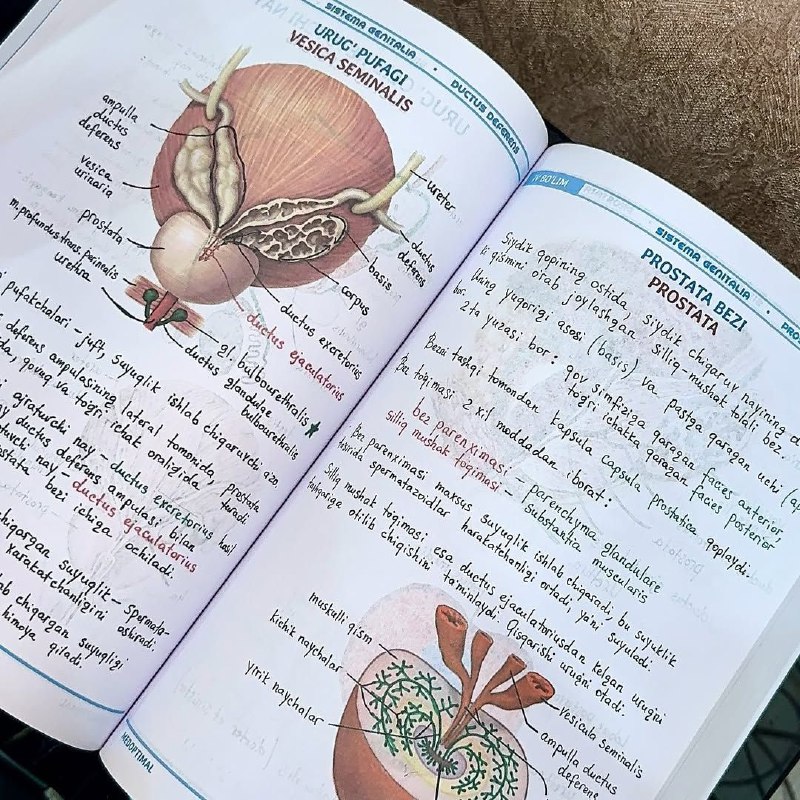 SISTEMA GENITALIA • DUCTUS DEFERENS
URUG' PUFAGI
VESICA SEMINALIS
ampulla
ductus
deferens
vesica
urinaria
prostata
m.profundus trans.perinealis
uretura
ureter
ductus
deferens
basis
corpus
ductus excretorius
ductus ejaculatorius
gl. bulbourethralis
ductus glandulae
bulbourethralis
pufakchalari - juft, suyuqlik ishlab chiqaruvchi a'zo
deferens ampulasining lateral tomonida, prostata
qovuq va to'g'ri ichak oralig'ida turadi
chiqaruv nay - ductus excretorius
ductus deferens ampulasi bilan hosil
nay - ductus ejaculatorius
prostata bezi ichiga ochiladi.
chiqargan suyuqlik - spermato-
xarakatchanligini oshiradi.
chiqargan suyugligi
himoya qiladi.
MEDOPTIMAL
IV BO'LIM
SISTEMA GENITALIA •
PROSTATA BEZI
PROSTATA
Siydik qopining ostida, siydik chiqaruv nayining
qismini o'rab joylashgan silliq-mushak tolali, bez.
Uning yuqorigi asosi (basis) va pastga qaragan uchi
bor. 2ta yuzasi bor: qov simfiziga qaragan facies anterior
to'g'ri ichakka qaragan facies posterior
Bezni tashqi tomondan kapsula capsula prostatica qoplaydi.
Bez to'qimasi 2 xil moddadan iborat:
bez parenximasi - parenchyma glandulare
silliq mushak to'qimasi - substantia muscularis
Bez parenximasi maxsus suyuqlik ishlab chiqaradi, bu suyuqlik
ta'sirida spermatazoidlar harakatchanligi ortadi, ya'ni suyuladi.
Silliq mushak to'qimasi esa ductus ejaculatoriusdan kelgan urug'ni
tashqariga otilib chiqishini ta'minlaydi. Qisqarishi urug'ni otadi.
muskulli qism
kichik naychalar
yirik naychalar
vesicula seminalis
ampulla ductus
deferens